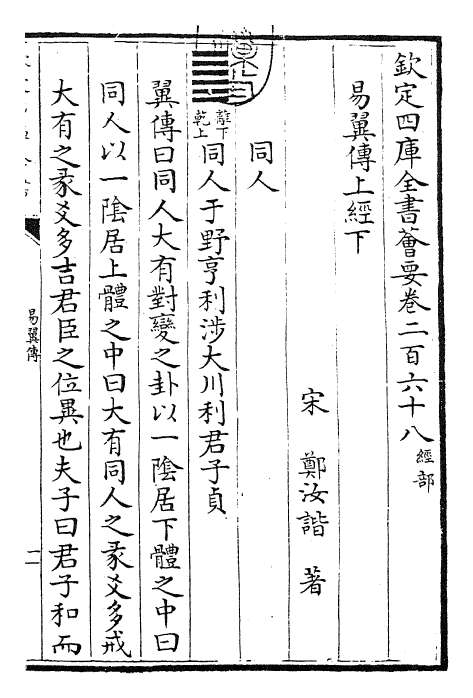 欽定四庫全書薈要卷二百六十八 經部
易翼傳上經下
宋 鄭汝諧 著
同人
離下
乾上
同人于野亨利涉大川利君子貞
翼傳曰同人大有對變之卦以一陰居下體之中曰
同人以一陰居上體之中曰大有同人之彖爻多戒
大有之彖爻多吉君臣之位異也夫子曰君子和而
易翼傳
一